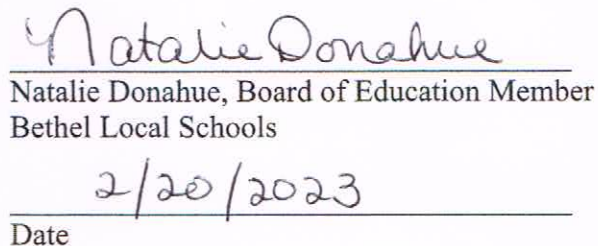 Natalie Donahue
Natalie Donahue, Board of Education Member
Bethel Local Schools
2/20/2023
Date